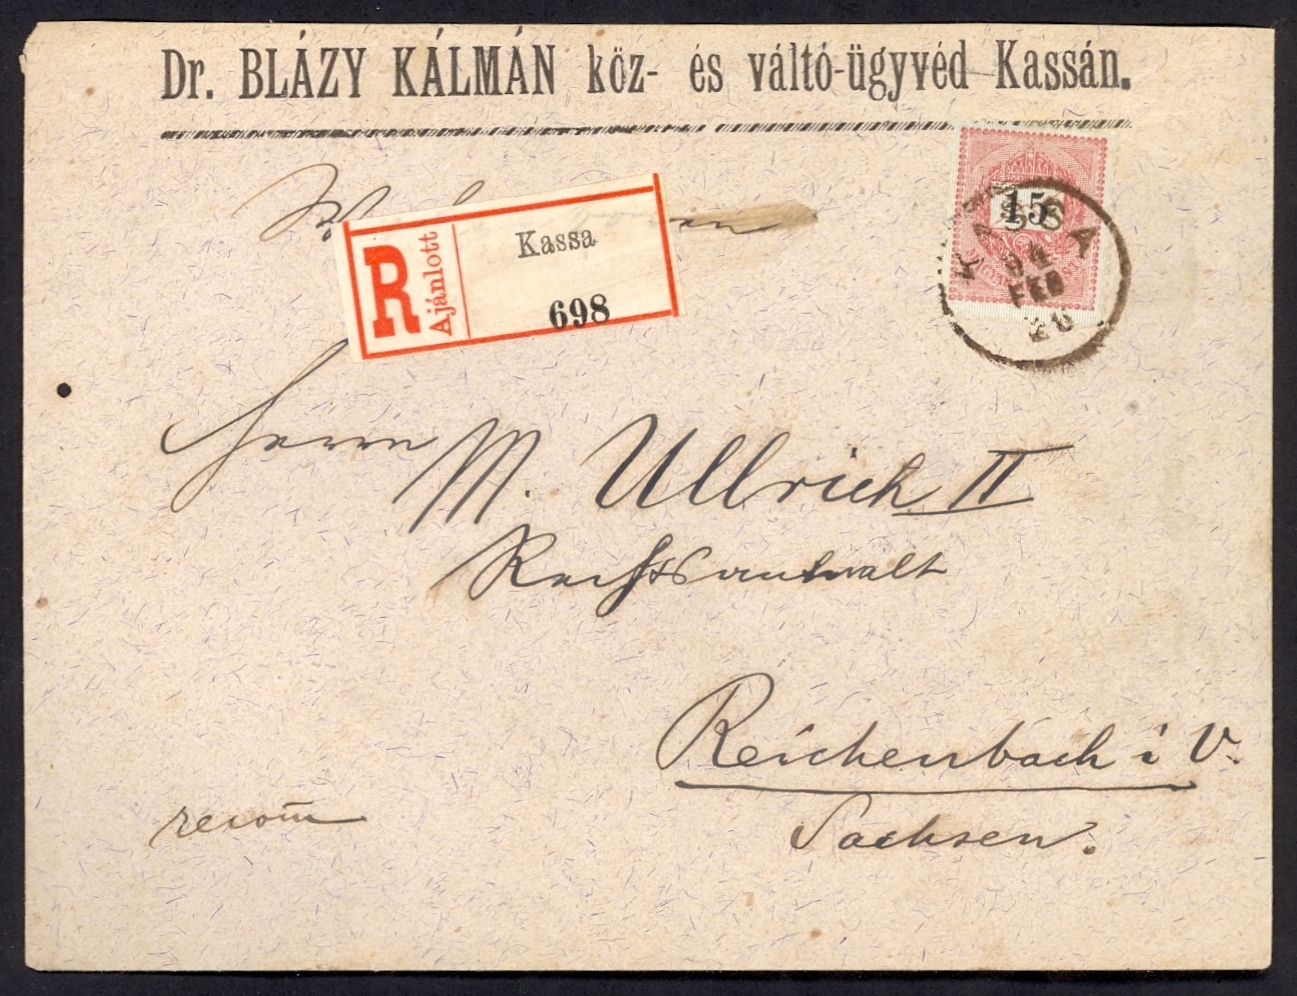 Dr. BLÁZY KÁLMÁN köz- és váltó-ügyvéd Kassán.
15
KASSA
94
FEB
26
R
Ajánlott
Kassa
698
Herrn M. Ullrich II
Rechtsanwalt
Reichenbach i V.
Sachsen.
recom̄